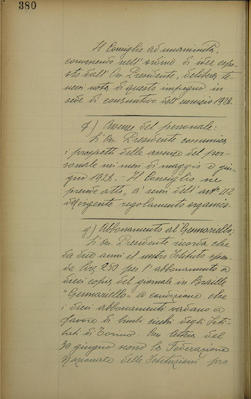 380
Il Consiglio ad unanimità,
convenendo nell'ordine di idee espo-
ste dall'On. Presidente, delibera te-
ner nota di questo impegno in
sede di consuntivo dell'esercizio 1928.
f) Assenze del personale:
L'On. Presidente comunica
i prospetti delle assenze del per-
sonale nei mesi di maggio e giu-
gno 1928. Il Consiglio ne
prende atto, a' sensi dell'art. 112
regolamento organico.
g) Abbonamento al Gennariello:
L'On. Presidente ricorda che
da due anni il nostro Istituto spen-
de Lire 250 per l'abbonamento a
dieci copie del giornale in Braille
"Gennariello" a condizione che
i dieci abbonamenti vadano a
favore di bimbi ciechi degli Isti-
tuti di Torino. Con lettera del
30 giugno scorso la Federazione
Nazionale delle Istituzioni pro